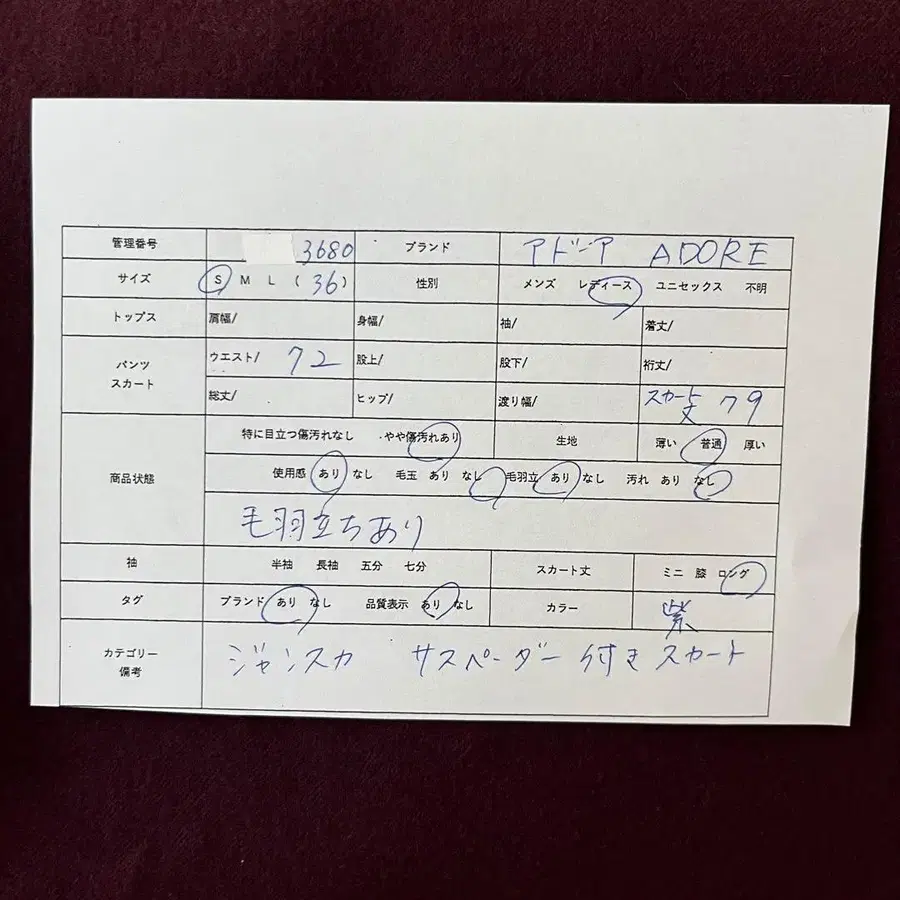 管理番号 3680 ブランド アドーア ADORE
サイズ S M L (36) 性別 メンズ レディース ユニセックス 不明
トップス 肩幅/ 身幅/ 袖/ 着丈/
パンツ スカート ウエスト/ 72 股上/ 股下/ 裄丈/
総丈/ ヒップ/ 渡り幅/ スカート丈 79
商品状態 特に目立つ傷汚れなし やや傷汚れあり 生地 薄い 普通 厚い
使用感 あり なし 毛玉 あり なし 毛羽立 あり なし 汚れ あり なし
毛羽立ちあり
袖 半袖 長袖 五分 七分 スカート丈 ミニ 膝 ロング
タグ ブランド あり なし 品質表示 あり なし カラー 紫
カテゴリー 備考 ジャンスカ サスペーダー付きスカート